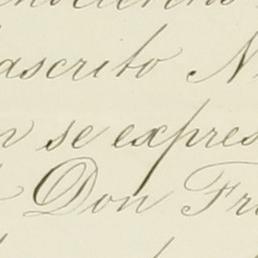 ascrito N
n se expres
Don Fr